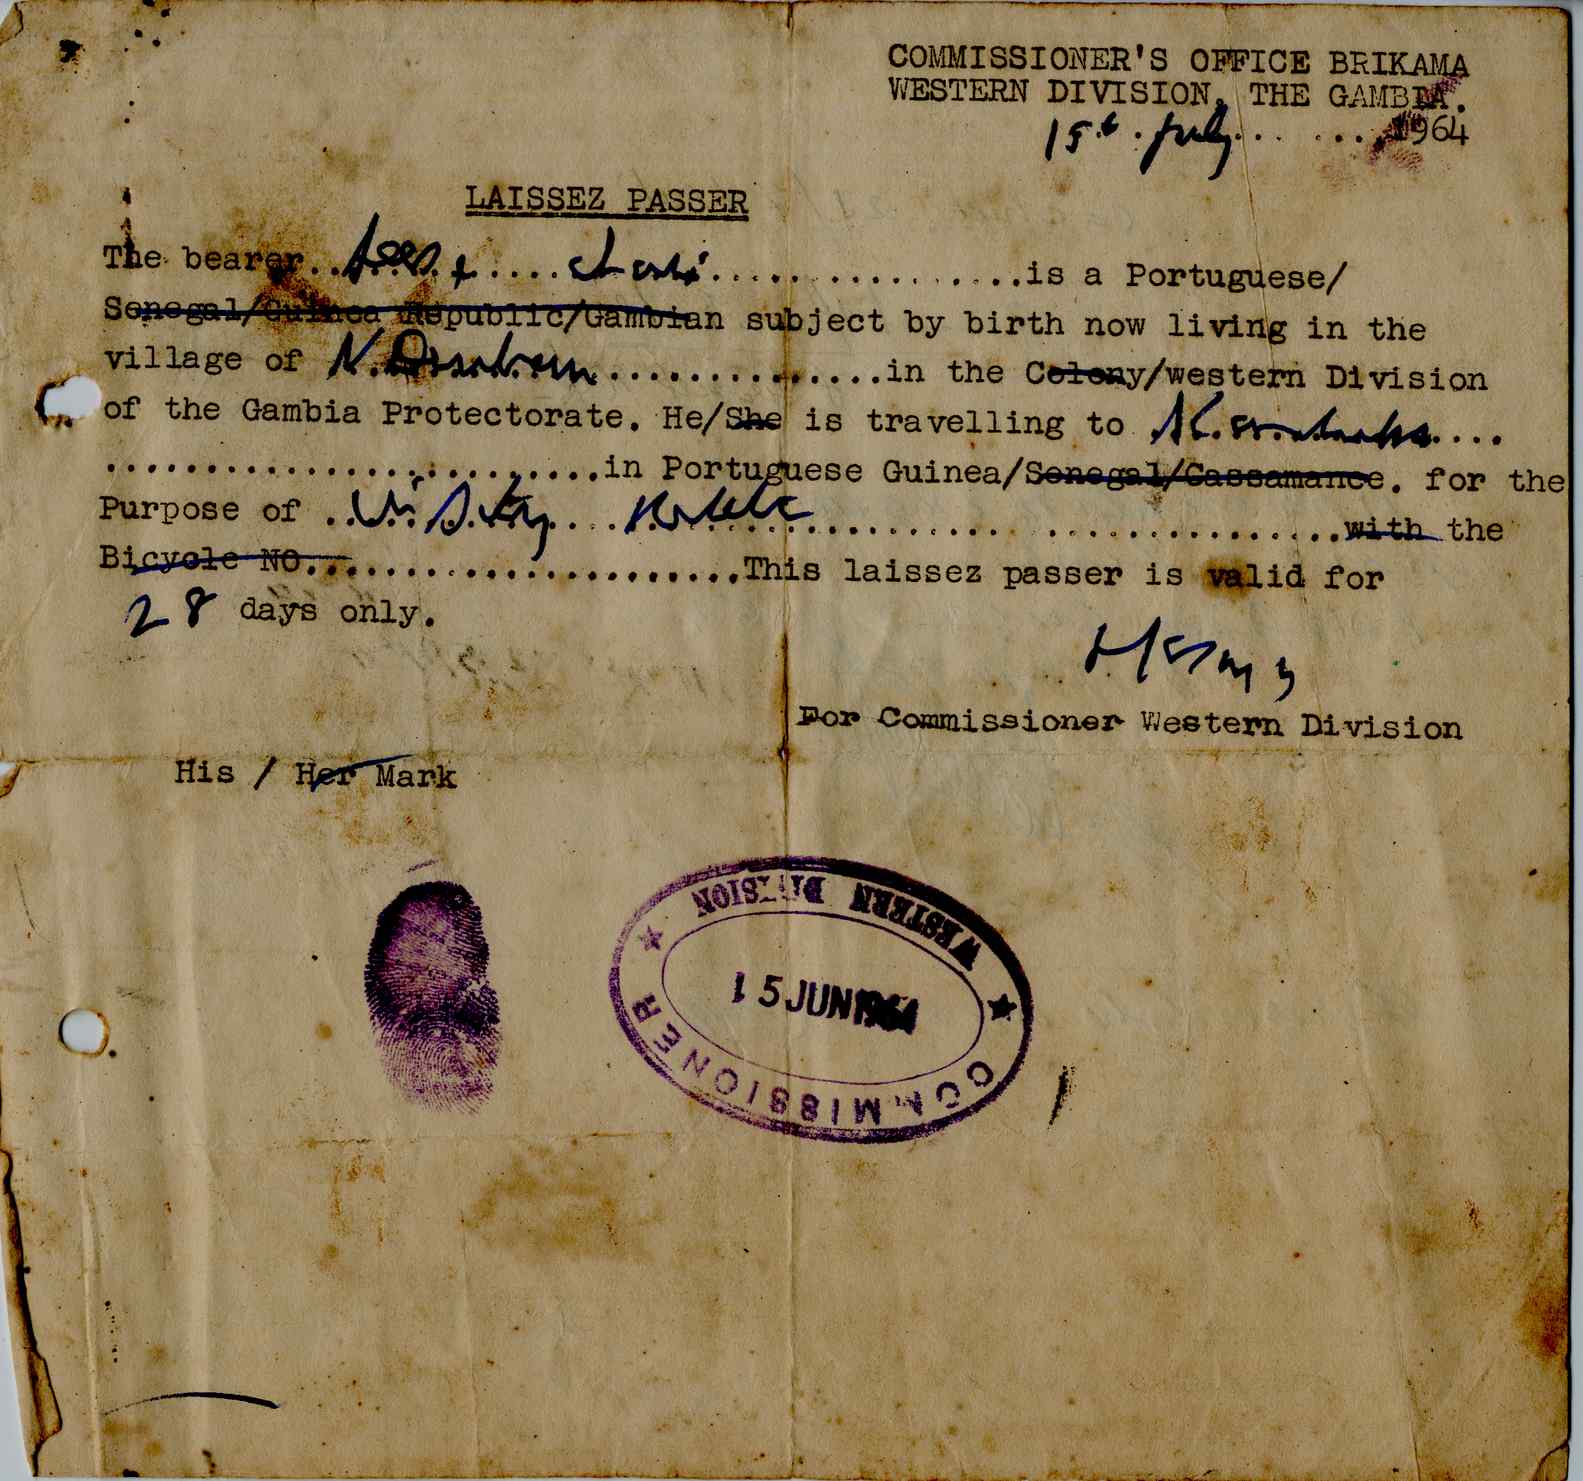 COMMISSIONER'S OFFICE BRIKAMA
WESTERN DIVISION, THE GAMBIA.
15th July 1964
LAISSEZ PASSER
The bearer.. ..... ................is a Portuguese/
Senegal/Guinea Republic/Gambian subject by birth now living in the
village of ..............in the Colony/western Division
of the Gambia Protectorate. He/She is travelling to ....
.........................in Portuguese Guinea/Senegal/Cassamance. for the
Purpose of .. Visiting ..............................with the
Bicycle NO......................This laissez passer is valid for
28 days only.
For Commissioner Western Division
His / Her Mark
WESTERN DIVISION
15 JUN 1964
COMMISSIONER